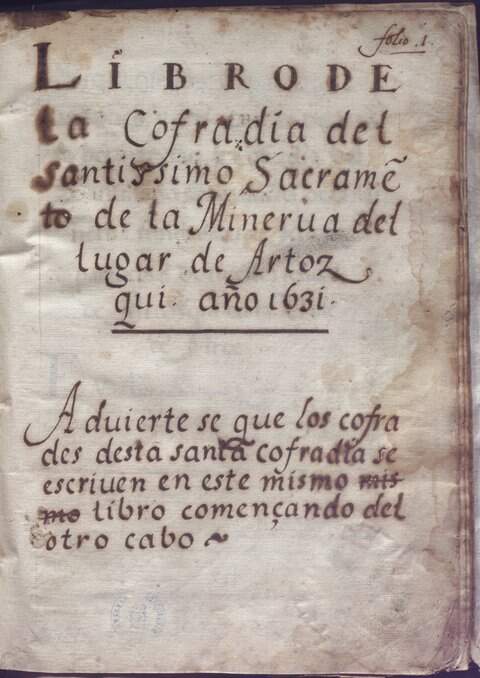 folio .1.
LIBRO DE
la Cofradia del
santissimo Sacramẽ
to de la Minerua del
lugar de Artoz
qui. año 1631.
Aduierte se que los cofra
des desta santa cofradia se
escriuen en este mismo mis
mo libro començando del
otro cabo ~